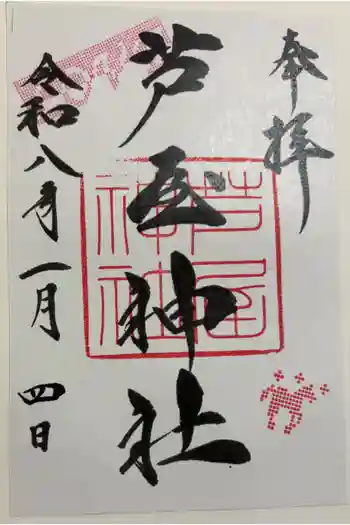 奉拝
芦屋神社
令和八年一月四日
芦屋
神社